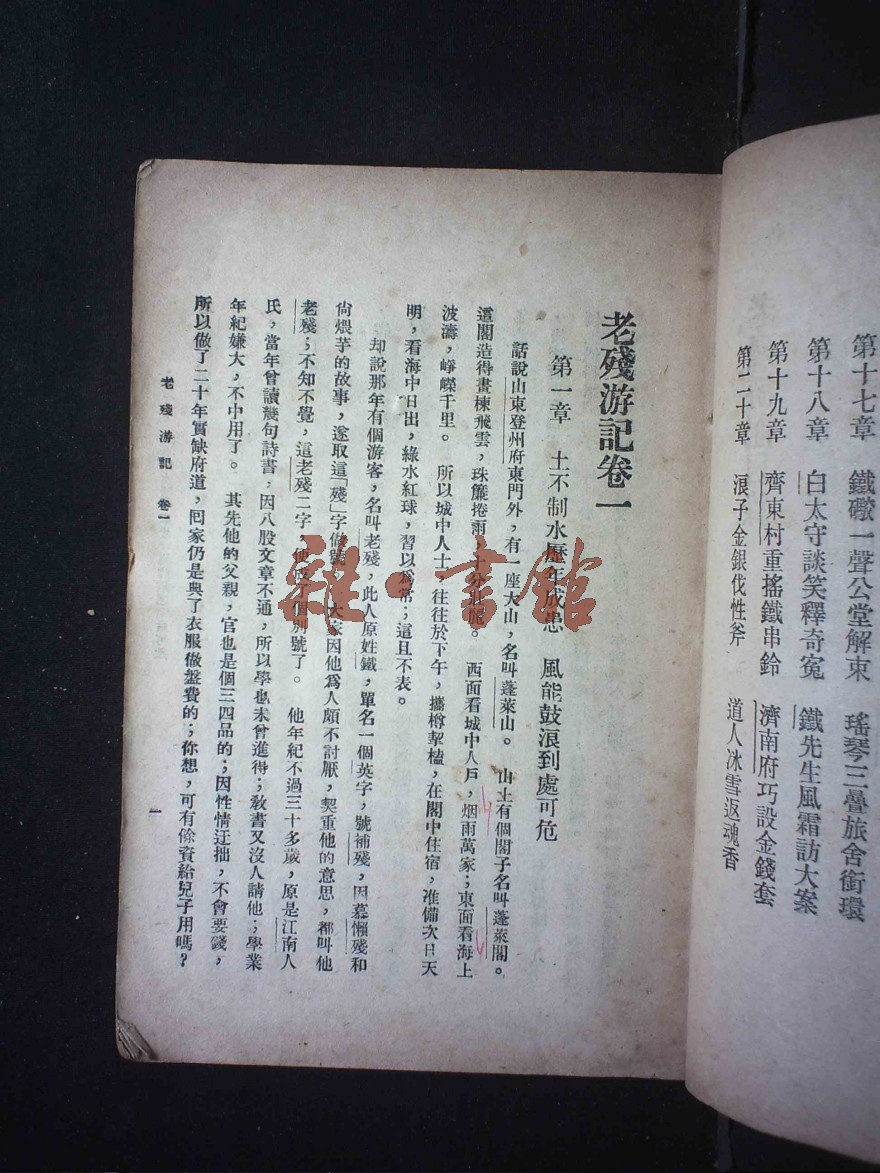 第十七章　鐵礮一聲公堂解束　瑤琴三疊旅舍銜環
第十八章　白太守談笑釋奇冤　鐵先生風霜訪大案
第十九章　齊東村重搖鐵串鈴　濟南府巧設金錢套
第二十章　浪子金銀伐性斧　道人冰雪返魂香
老殘游記卷一
第一章　土不制水歷年成患　風能鼓浪到處可危
話說山東登州府東門外，有一座大山，名叫蓬萊山。山上有個閣子名叫蓬萊閣。
這閣造得畫棟飛雲，珠簾捲雨，十分壯麗。西面看城中人戶，烟雨萬家；東面看海上
波濤，崢嶸千里。所以城中人士，往往於下午，攜樽挈榼，在閣中住宿，准備次日天
明，看海中日出，綠水紅球，習以爲常；這且不表。
却說那年有個游客，名叫老殘，此人原姓鐵，單名一個英字，號補殘，因慕懶殘和
尙煨芋的故事，遂取這「殘」字做號。大家因他爲人頗不討厭，契重他的意思，都叫他
老殘；不知不覺，這老殘二字，便成了個別號了。他年紀不過三十多歲，原是江南人
氏，當年曾讀幾句詩書，因八股文章不通，所以學也未曾進得；敎書又沒人請他；學業
年紀嫌大，不中用了。其先他的父親，官也是個三四品的；因性情迂拙，不會要錢，
所以做了二十年實缺府道，囘家仍是與了衣服做盤費的；你想，可有餘資給兒子用嗎？
老殘游記　卷一
一
雜·書館